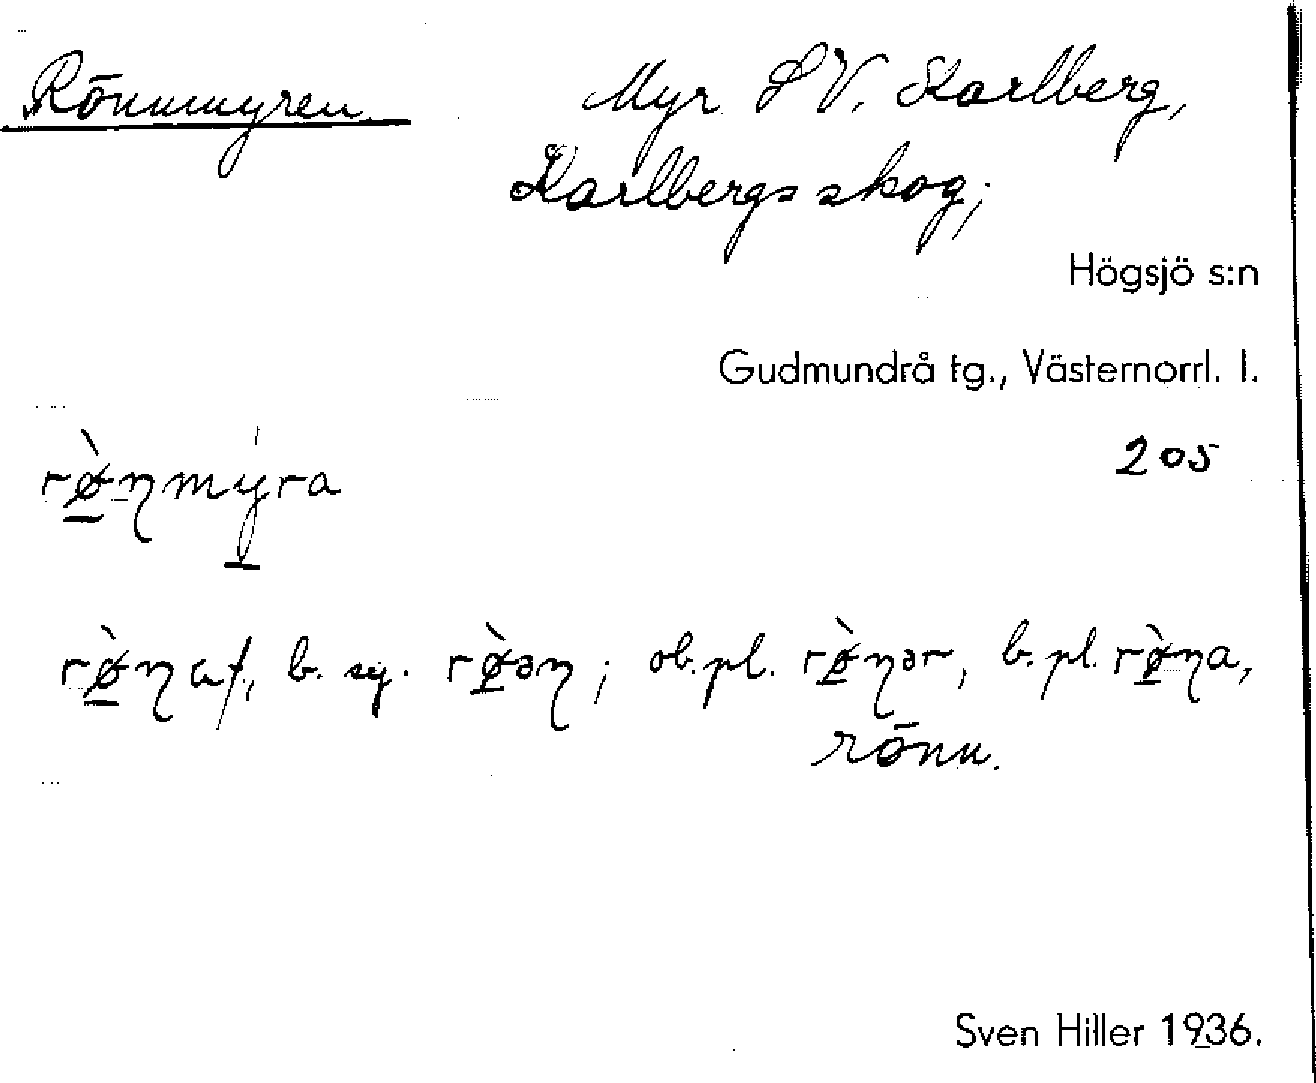 Rönnmyren. Myr SV. Karlberg,
Karlbergsskog;
Högsjö s:n
Gudmundrå tg., Västernorrl. l.
205
rø̀ṇmyra
rø̀ṇa f., b. sg. rø̀əṇ; ob.pl. rø̀ṇər, b.pl. rø̀ṇa,
rönn.
Sven Hiller 1936.